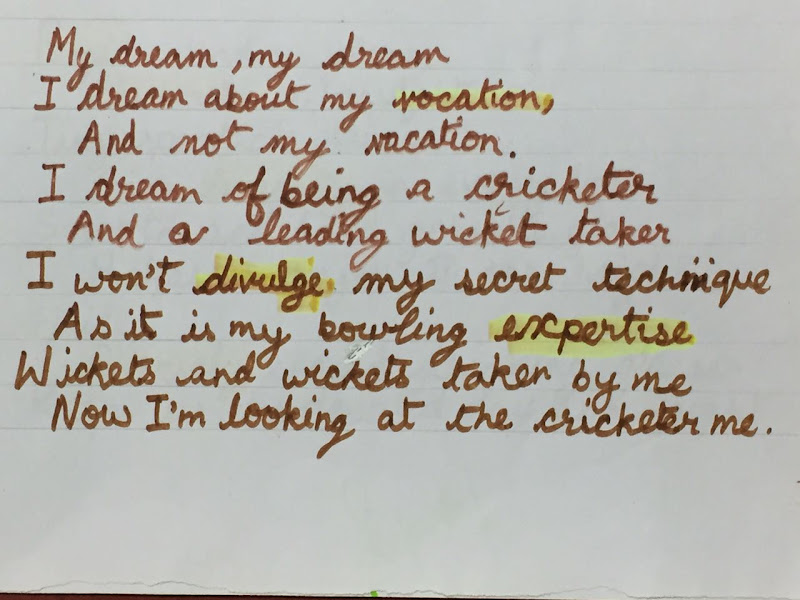 My dream, my dream
I dream about my vocation,
And not my vacation.
I dream of being a cricketer
And a leading wicket taker
I won't divulge my secret technique
As it is my bowling expertise
Wickets and wickets taken by me
Now I'm looking at the cricketer me.